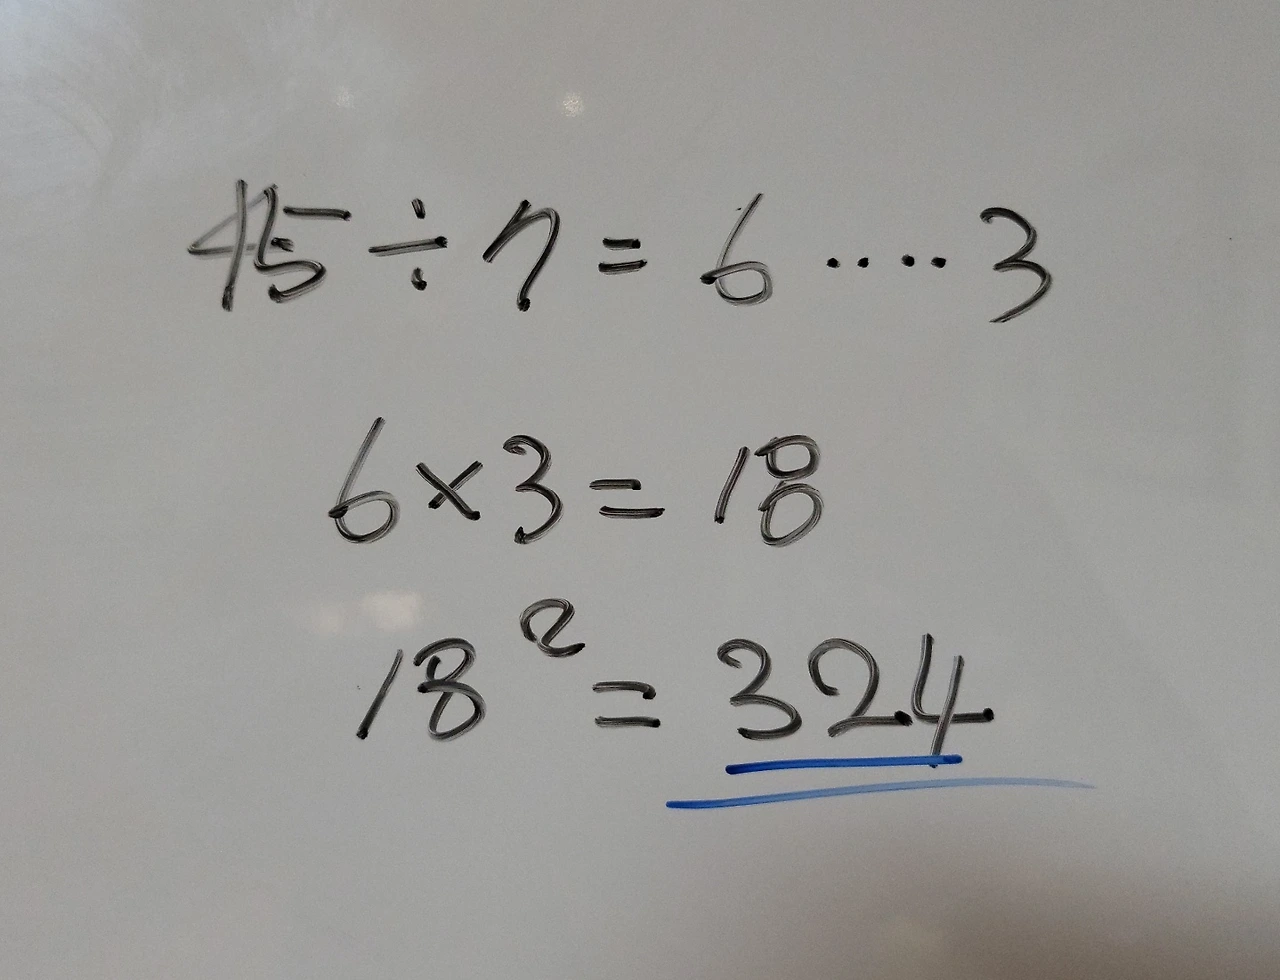 45÷7=6····3
6×3=18
18²=324